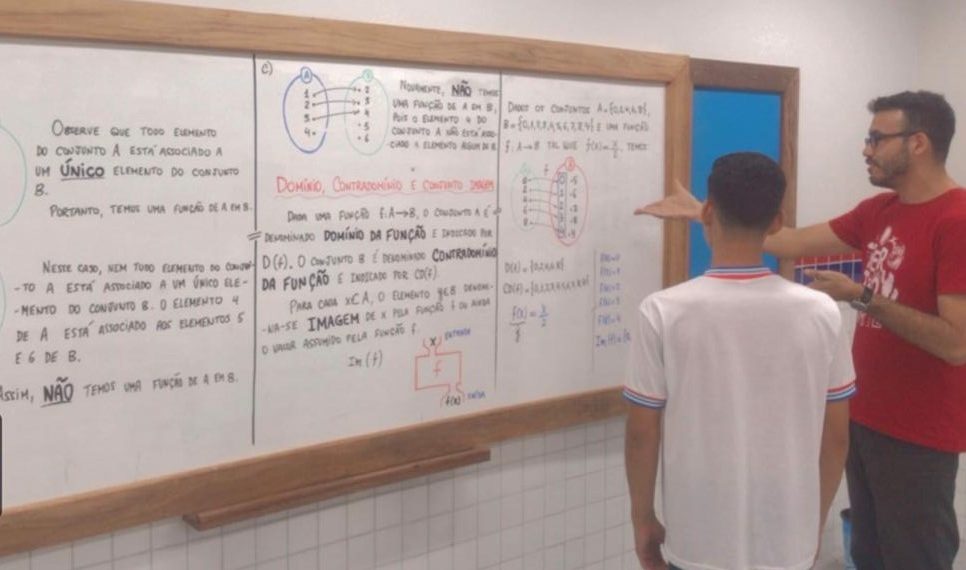 OBSERVE QUE TODO ELEMENTO
DO CONJUNTO A ESTÁ ASSOCIADO A
UM ÚNICO ELEMENTO DO CONJUNTO
B.
PORTANTO, TEMOS UMA FUNÇÃO DE A EM B.
NESTE CASO, NEM TODO ELEMENTO DO CONJUN-
-TO A ESTÁ ASSOCIADO A UM ÚNICO ELE-
-MENTO DO CONJUNTO B. O ELEMENTO 4
DE A ESTÁ ASSOCIADO AOS ELEMENTOS 5
E 6 DE B.
ASSIM, NÃO TEMOS UMA FUNÇÃO DE A EM B.
C)
A
1
2
3
4
B
2
3
4
5
6
NOVAMENTE, NÃO TEMOS
UMA FUNÇÃO DE A EM B,
POIS O ELEMENTO 4 DO
CONJUNTO A NÃO ESTÁ ASSO-
-CIADO A ELEMENTO ALGUM DE B.
DOMÍNIO, CONTRADOMÍNIO E CONJUNTO IMAGEM
DADA UMA FUNÇÃO f: A→B, O CONJUNTO A É
DENOMINADO DOMÍNIO DA FUNÇÃO E INDICADO POR
D(f). O CONJUNTO B É DENOMINADO CONTRADOMÍNIO
DA FUNÇÃO E INDICADO POR CD(f).
PARA CADA x∈A, O ELEMENTO y∈B DENOMI-
-NA-SE IMAGEM DE X PELA FUNÇÃO f OU AINDA
O VALOR ASSUMIDO PELA FUNÇÃO f.
Im (f)
X ENTRADA
f
f(x) SAÍDA
DADOS OS CONJUNTOS A = {0,2,4,6,8},
B = {0,1,2,3,4,5,6,7,8,9} E UMA FUNÇÃO
f: A→B TAL QUE f(x) = x/2, TEMOS
f
D(f) = {0,2,4,6,8}
CD(f) =
f(x) = x/2